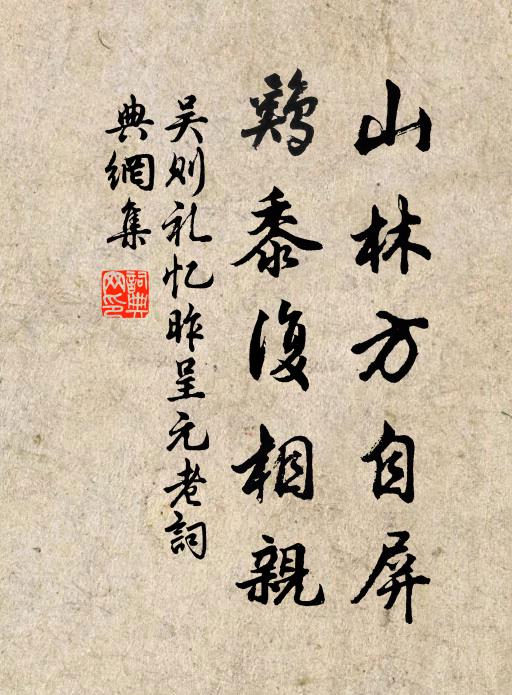 山林方自屏
鷄黍復相親
吴则礼忆昨呈元老詞
典網集
詞典網印